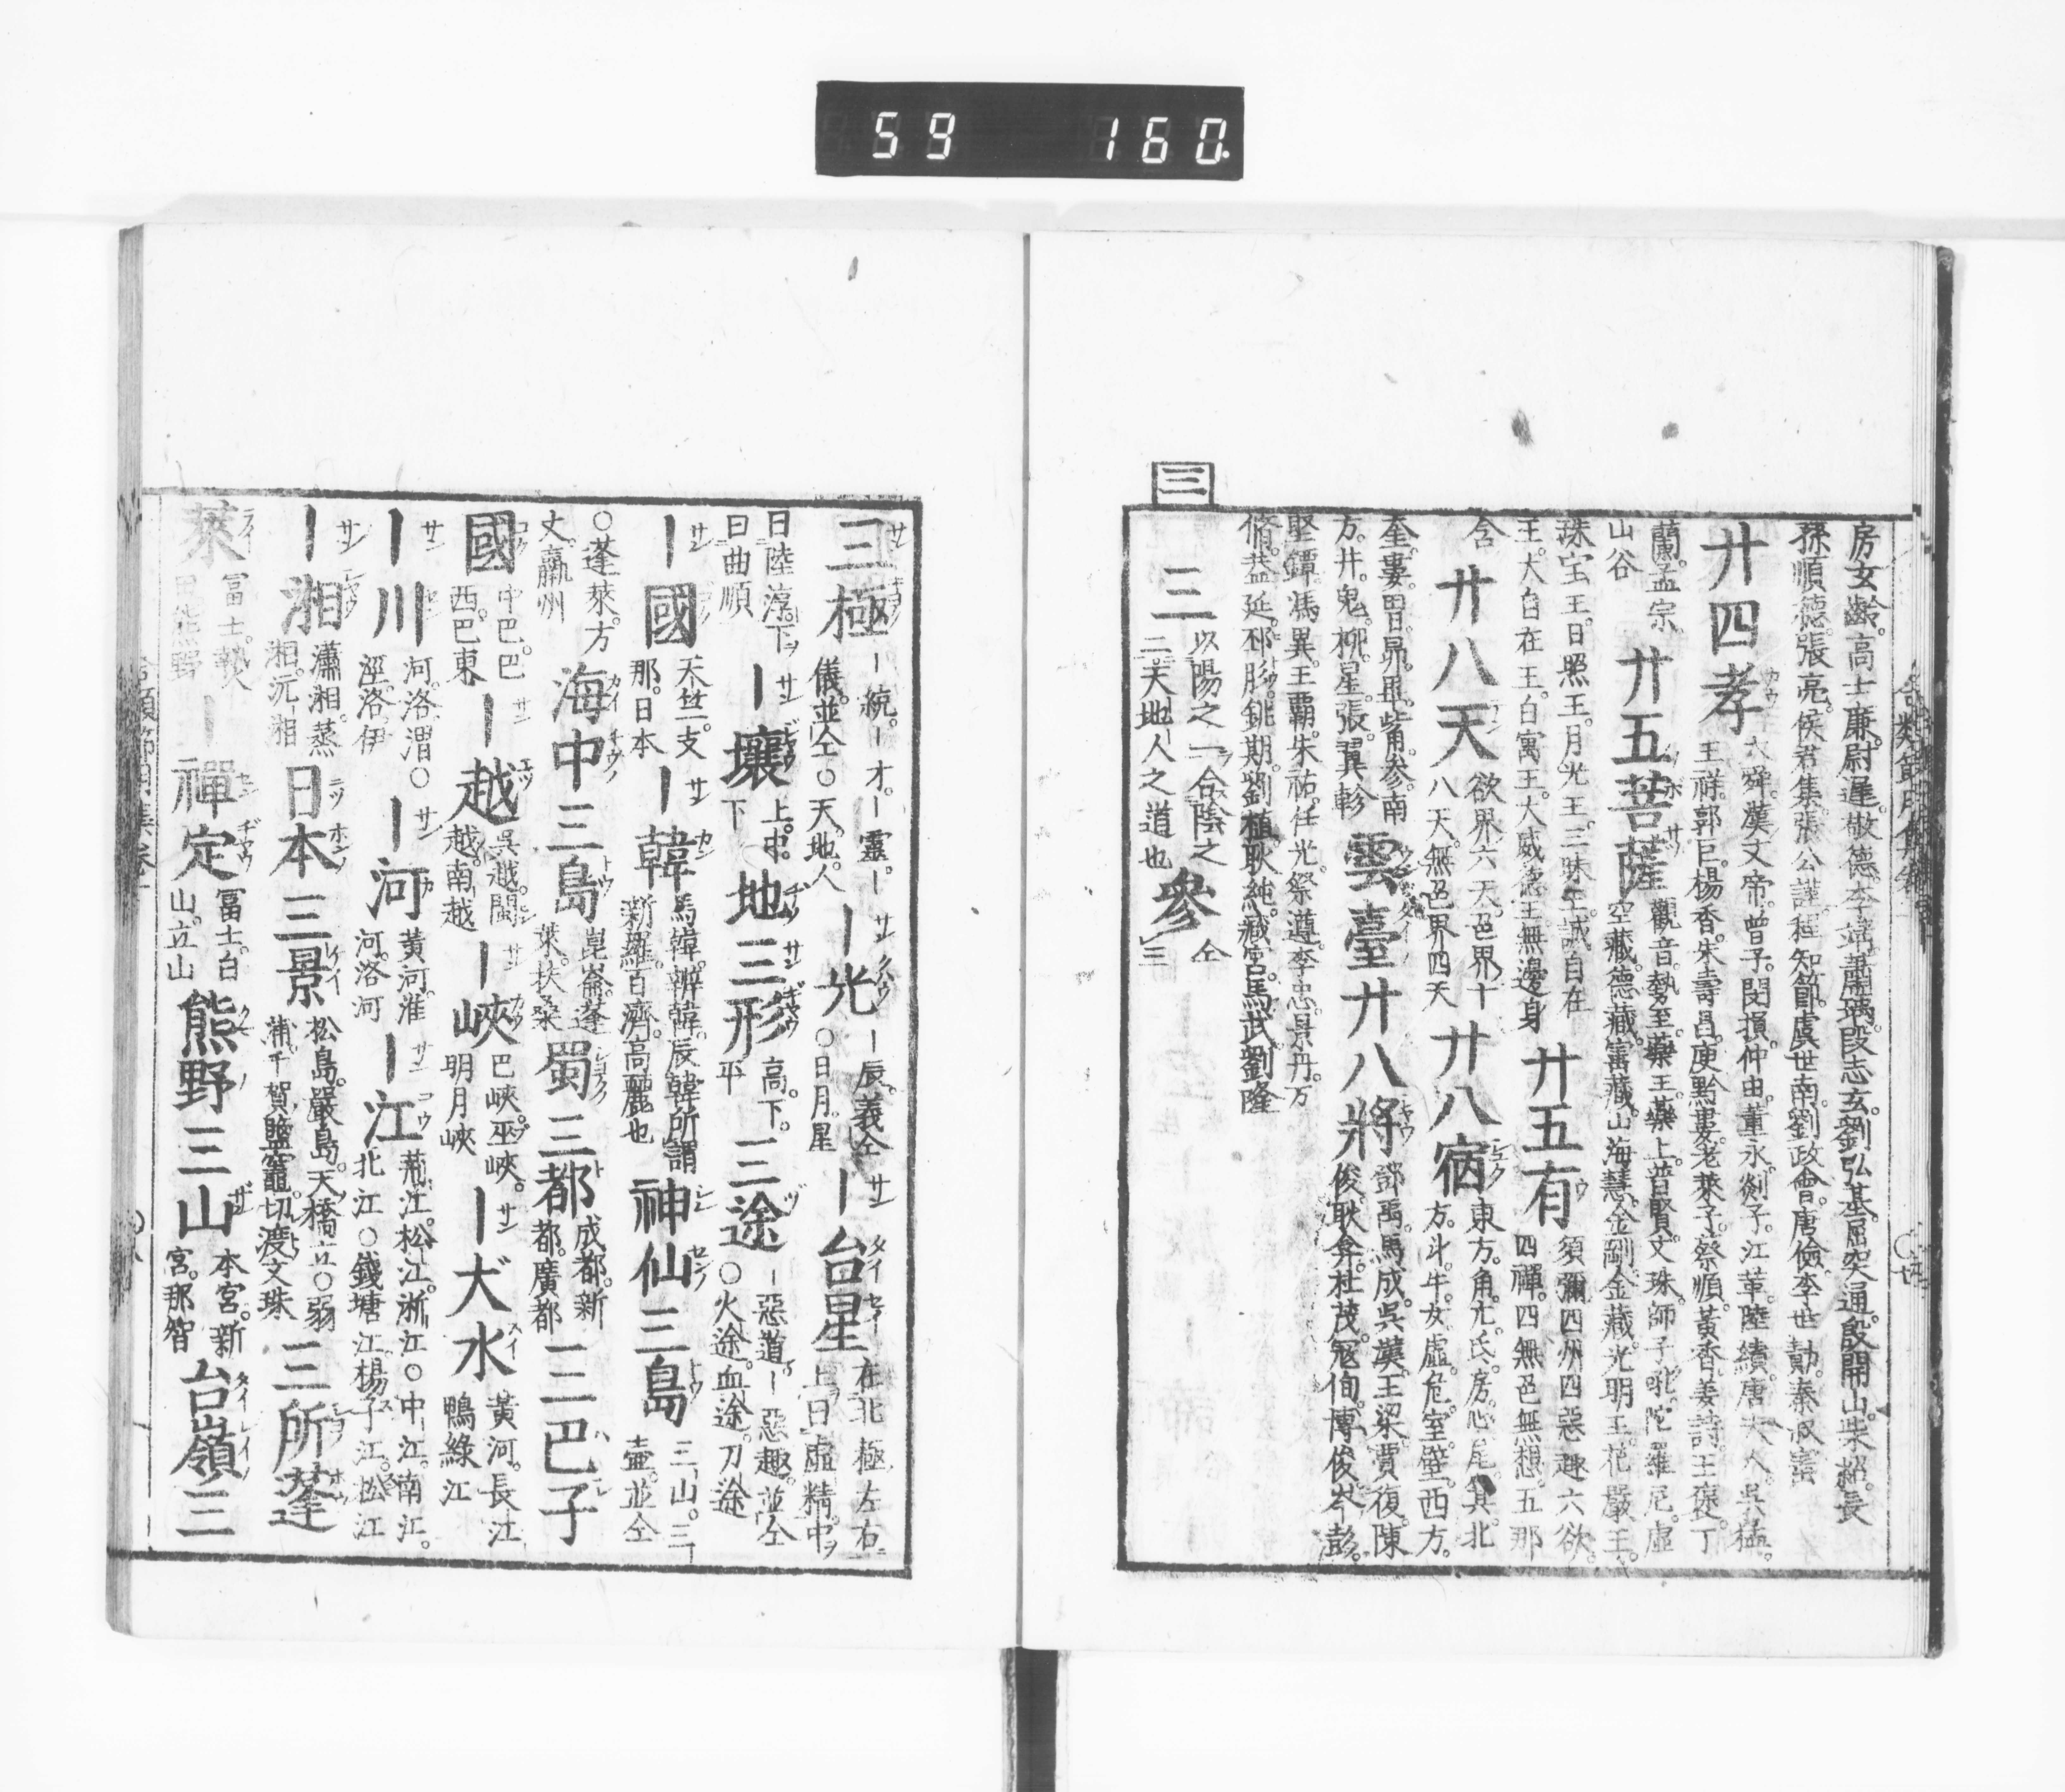 59 160
房玄齡。高士廉。尉遲敬德。李靖。蕭瑀。段志玄。劉弘基。屈突通。殷開山。柴紹。長
孫順德。張亮。侯君集。張公謹。程知節。虞世南。劉政會。唐儉。李世勣。秦叔寳
廿四孝 大舜。漢文帝。曾子。閔損。仲由。董永。剡子。江革。陸績。唐夫人。呉猛。
王祥。郭巨。楊香。朱壽昌。庾黔婁。老萊子。蔡順。黃香。姜詩。王裒。丁
蘭。孟宗。
山谷
廿五菩薩 觀音。勢至。藥王。藥上。普賢。文珠。師子吼。陀羅尼。虚
空藏。德藏。寳藏。山海慧。金剛。金藏。光明王。花嚴王。
珠宝王。日照王。月光王。三昧王。誠自在
王。大自在王。白寓王。大威德王。無邊身
廿五有 須彌四州四惡趣六欲。
四禪。四無色無想。五那
含
廿八天 欲界六天。色界十
八天。無色界四天
廿八宿 東方。角亢氐房心尾箕北
方。斗牛女虚危室壁。西方。
奎婁胃昴畢觜參。南
方。井鬼柳星張翼軫
雲臺廿八將 鄧禹。馬成。呉漢。王梁。賈復。陳
俊。耿弇。杜茂。冦恂。傅俊。岑彭。
堅鐔。馮異。王霸。朱祐。任光。祭遵。李忠。景丹。万
脩。葢延。邳彤。銚期。劉植。耿純。臧宮。馬武。劉隆
三
三 以陽之一合陰之
二。天地人之道也
參 仝三
三極 ー統。ー才。ー靈。ー
儀。並仝○天。地。人
ー光 ー辰。義仝
○日月。星
ー台星 在北極左右
上曰虚精中
曰陸淳。下
曰曲順
ー壤 上。中。
下
地三形 高。下。
平
三途 ー惡道。ー惡趣。並仝
○火途。血途。刀途
ー國 天竺。支
那。日本
ー韓 馬韓。辨韓。辰韓所謂
新羅。百濟。高麗也
神仙三島 三山。三
壷。並仝
○蓬萊。方
丈。瀛州
海中三島 崑崙。蓬
萊。扶桑
蜀三都 成都。新
都。廣都
三巴子
國 中巴。巴
西。巴東
ー越 呉越。閩
越。南越
ー峽 巴峽。巫峽。
明月峽
ー大水 黃河。長江
鴨綠江
ー川 河。洛。渭○
涇。洛。伊
ー河 黃河。淮
河。洛河
ー江 荊江。松江。浙江○中江。南江。
北江○錢塘江。楊子江。松江
ー湘 瀟湘。蒸
湘。沅湘
日本三景 松島。嚴島。天橋立○弱
浦。千賀鹽竈。切渡文珠
三所蓬
萊 冨士。熱
田。熊野
ー禪定 冨士。白
山。立山
熊野三山 本宮。新
宮。那智
台嶺三